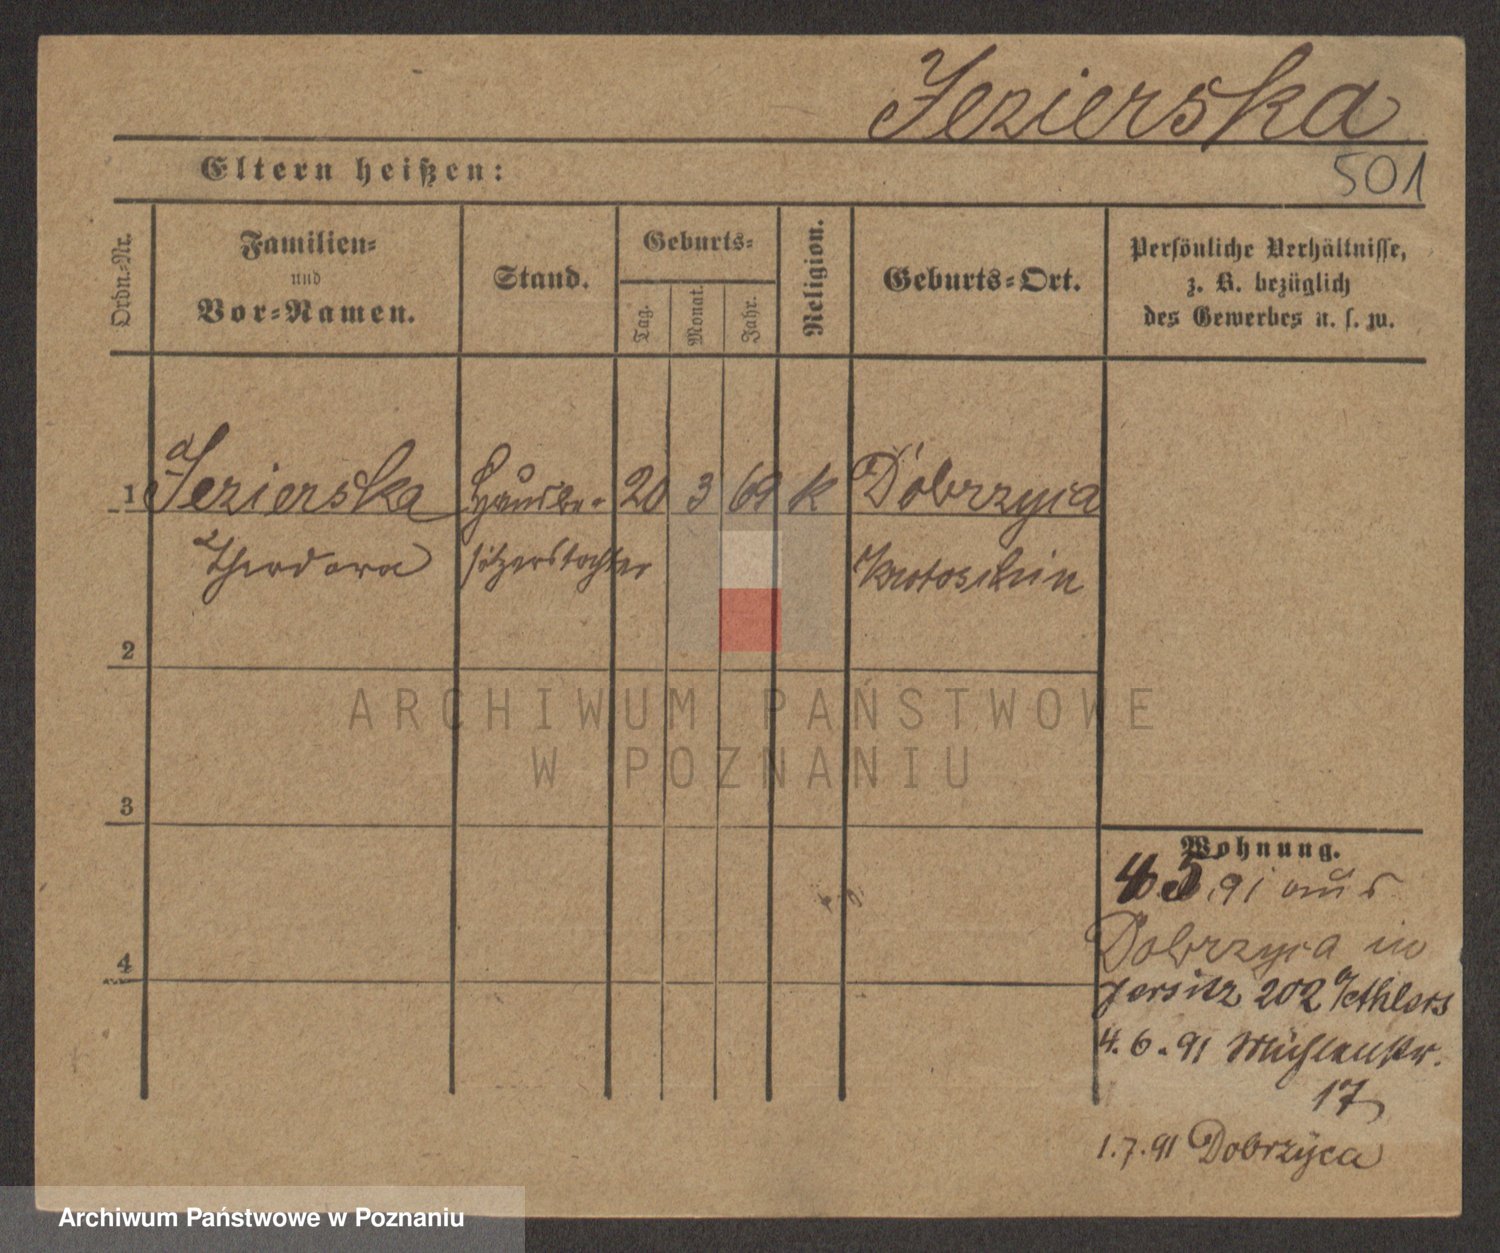 Jezierska
501
Eltern heißen:
Ordn.-Nr.
Familien-
und
Vor-Namen.
Stand.
Geburts-
Tag.
Monat.
Jahr.
Religion.
Geburts-Ort.
Persönliche Verhältnisse,
z. B. bezüglich
des Gewerbes u. s. w.
1 Jezierska Hausbe- 20 3 69 k Dobrzyca
Theodora sitzerstochter Krotoschin
2
3
4
Wohnung.
4.5.91 aus
Dobrzyca in
Jersitz 202
4.6.91 Mühlenstr.
17
1.7.91 Dobrzyca
ARCHIWUM PAŃSTWOWE
W POZNANIU
Archiwum Państwowe w Poznaniu